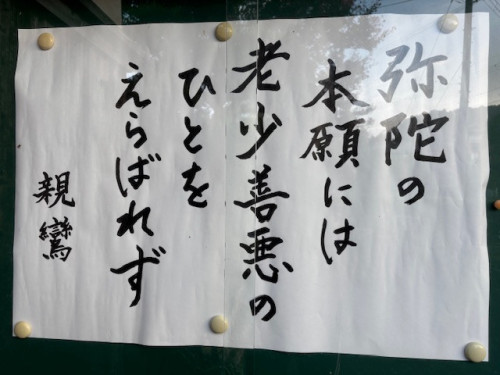 弥陀の
本願には
老少善悪の
ひとを
えらばれず
親鸞